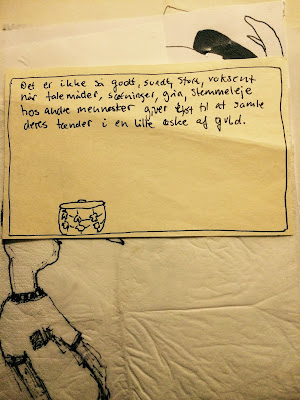 Det er ikke så godt, sundt, stort, voksent
når talemåder, sætninger, grin, stemmeleje
hos andre mennesker giver lyst til at samle
deres tænder i en lille æske af guld.